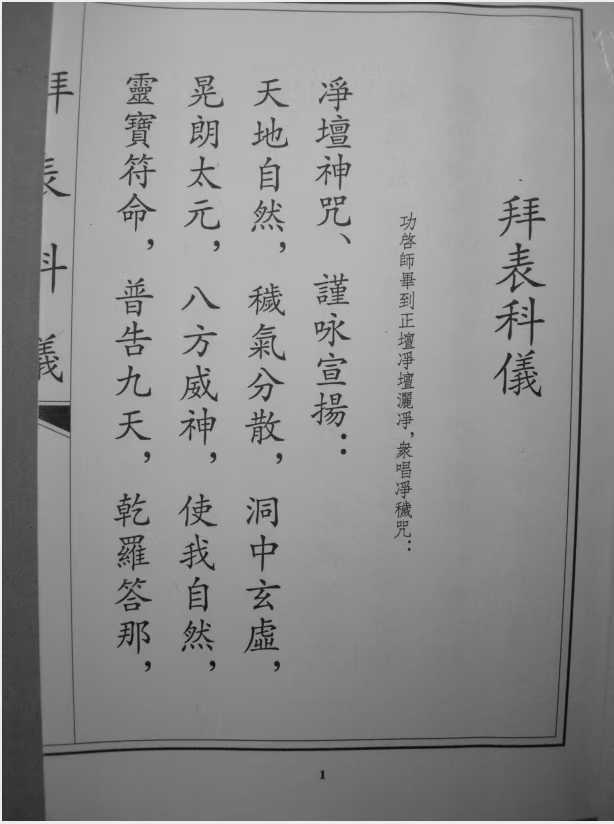 拜表科儀
功啓師畢到正壇淨壇灑淨，衆唱淨穢咒：
淨壇神咒、謹咏宣揚：
天地自然，穢氣分散，洞中玄虛，
晃朗太元，八方威神，使我自然，
靈寶符命，普告九天，乾羅答那，
拜表科儀
1